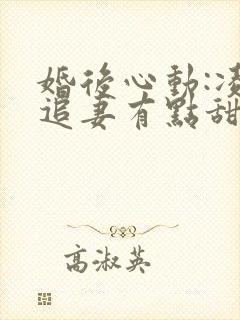 婚後心動:凌
追妻有點甜
高淑英